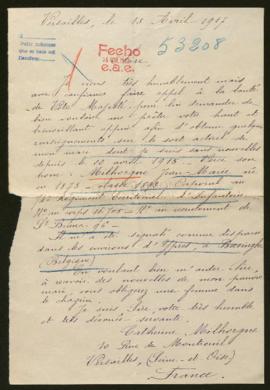 Versailles, le 15 Avril 1917
Fecho
e.a.e.
53208
Je viens très humblement mais
avec confiance faire appel à la bonté
de Votre Majesté pour lui demander de
bien vouloir me prêter votre haut et
bienveillant appui afin d'obtenir quelques
renseignements sur le sort actuel de
mon mari dont je suis sans nouvelles
depuis le 10 avril 1915. Voici son
nom: Milhorgne Jean-Marie né
en 1873 - classe 1893 Caporal au
Régiment Territorial d'Infanterie
No au corps 16708 - No au recrutement de
St Brieuc 96 -
Il signalé comme disparu
dans les environs d'Ypres à Boesinghe
(Belgique)
En voulant bien m'aider, Sire,
à savoir des nouvelles de mon pauvre
mari, vous obligez une femme dans
le chagrin.
Je suis, Sire, votre très humble
et très dévouée servante.
Catherine Milhorgne
10 Rue de Montreuil
Versailles, (Seine-et-Oise)
France